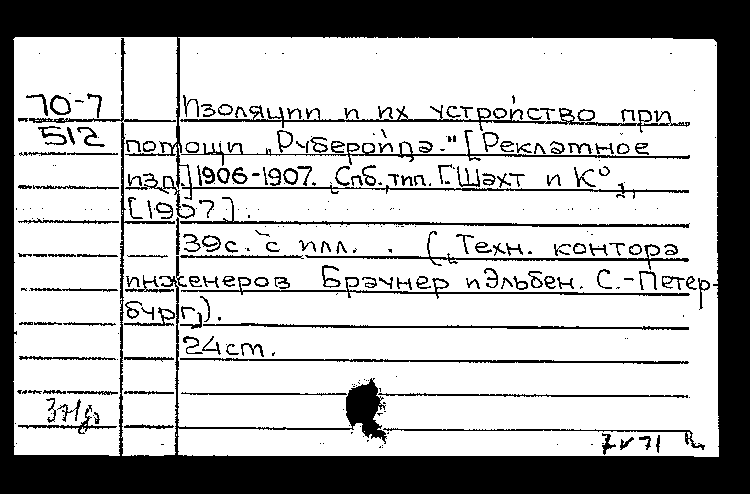 70-7 Изоляции и их устройство при
512 помощи „Руберойда." [Рекламное
изд.] 1906-1907. Спб., тип. Г. Шахт и К°,
[1907].
39с. с илл. („Техн. контора
инженеров Браунер и Эльбен. С.-Петер-
бург).
24см.
7 V 71